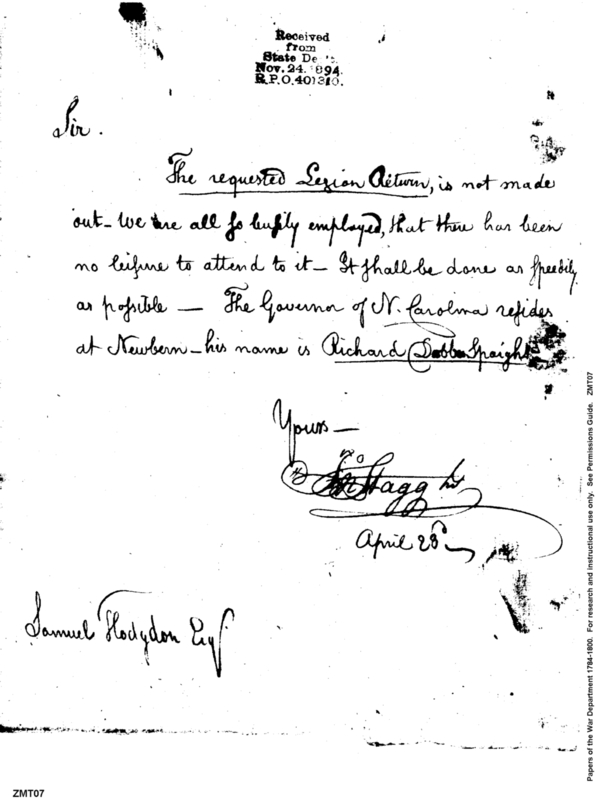 Received
from
State De
Nov. 24. 1894.
R.P.O. 401310.
Sir.
The requested Legion Return, is not made
out - We are all so busily employed, that there has been
no leisure to attend to it - It shall be done as speedily
as possible — The Governor of N. Carolina resides
at Newbern - his name is Richard Dobbs Spaight
Yours —
Jno Stagg Jnr
April 28th
Samuel Hodgdon Esqr
Papers of the War Department 1784-1800. For research and instructional use only. See Permissions Guide. ZMT07
ZMT07